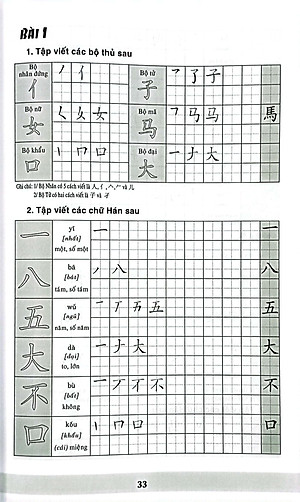 BÀI 1
1. Tập viết các bộ thủ sau
Bộ nhân đứng 亻 ノ 亻
Bộ tử 子 乛 了 子
Bộ nữ 女 く 女 女
Bộ mã 马 乛 马 马 馬
Bộ khẩu 口 丨 冂 口
Bộ đại 大 一 ナ 大
Ghi chú: 1/ Bộ Nhân có 5 cách viết là 人, 亻,
2/ Bộ Tử có hai cách viết là 子 và
2. Tập viết các chữ Hán sau
一 yī [nhất] một, số một 一
八 bā [bát] tám, số tám ノ 八
五 wǔ [ngũ] năm, số năm 一 丆 五 五
大 dà [đại] to, lớn 一 ナ 大
不 bù [bất] không 一 丆 不 不
口 kǒu [khẩu] (cái) miệng 丨 冂 口
33